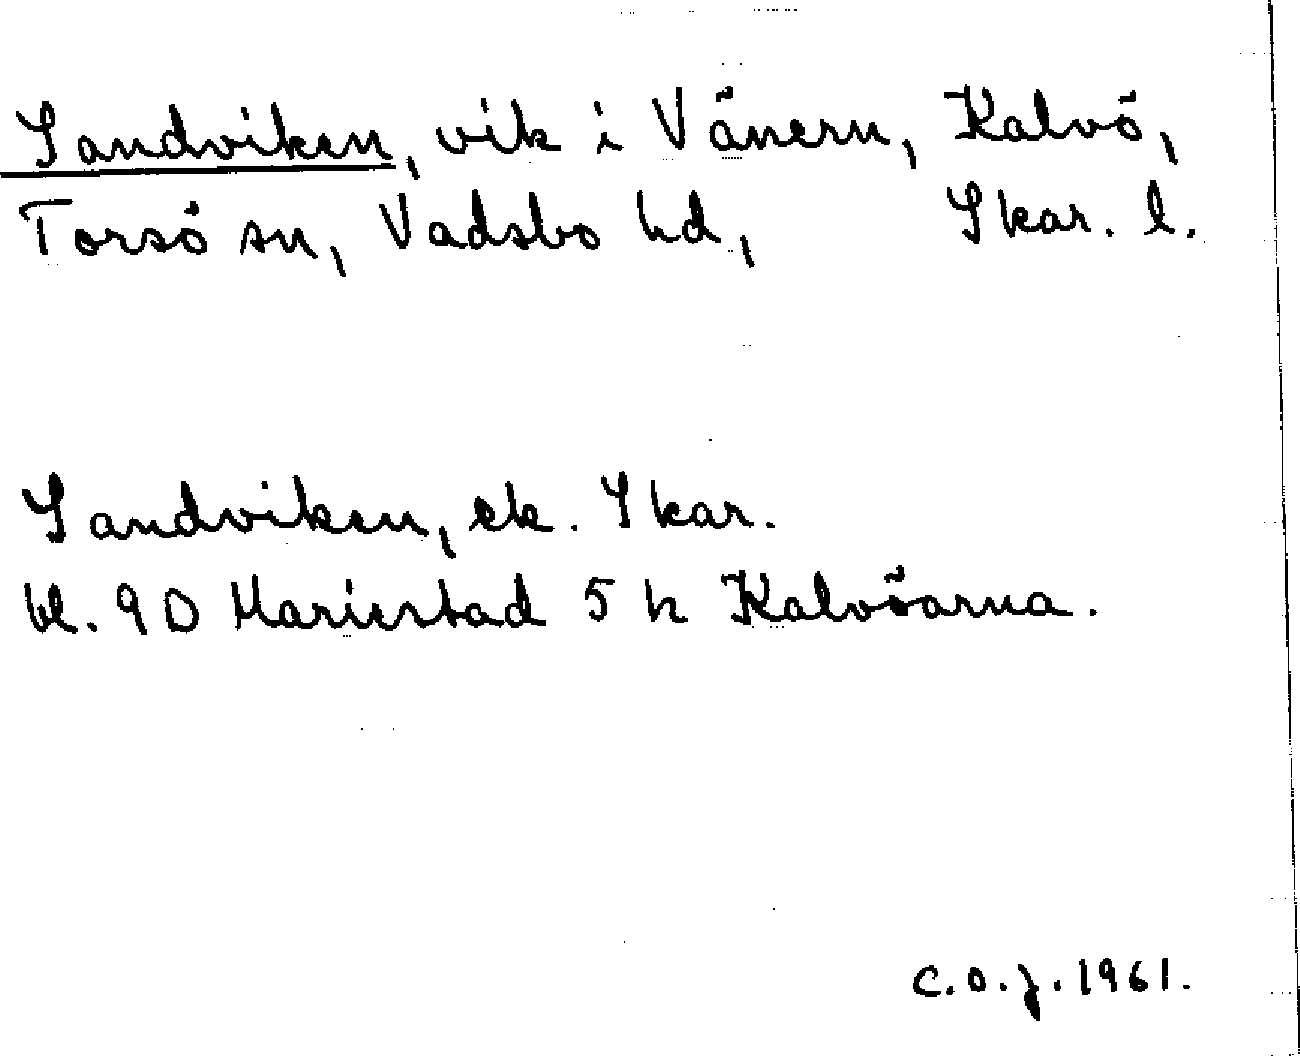 Sandviken, vik i Vänern, Kalvö,
Torsö sn, Vadsbo hd, Skar. l.
Sandviken, ek. Skar.
bl. 9D Mariestad 5 h Kalvöarna.
C.O.J. 1961.